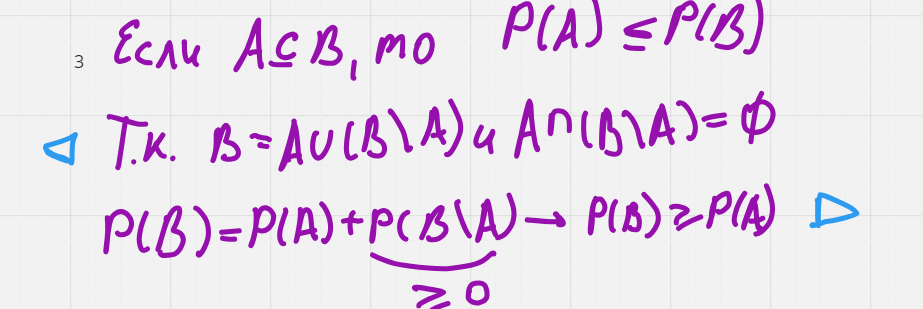 3 Если A⊆B, то P(A) ≤ P(B)
◁ Т.к. B=A∪(B\A) и A∩(B\A)=∅
P(B)=P(A)+P(B\A) → P(B)≥P(A) ▷
≥ 0